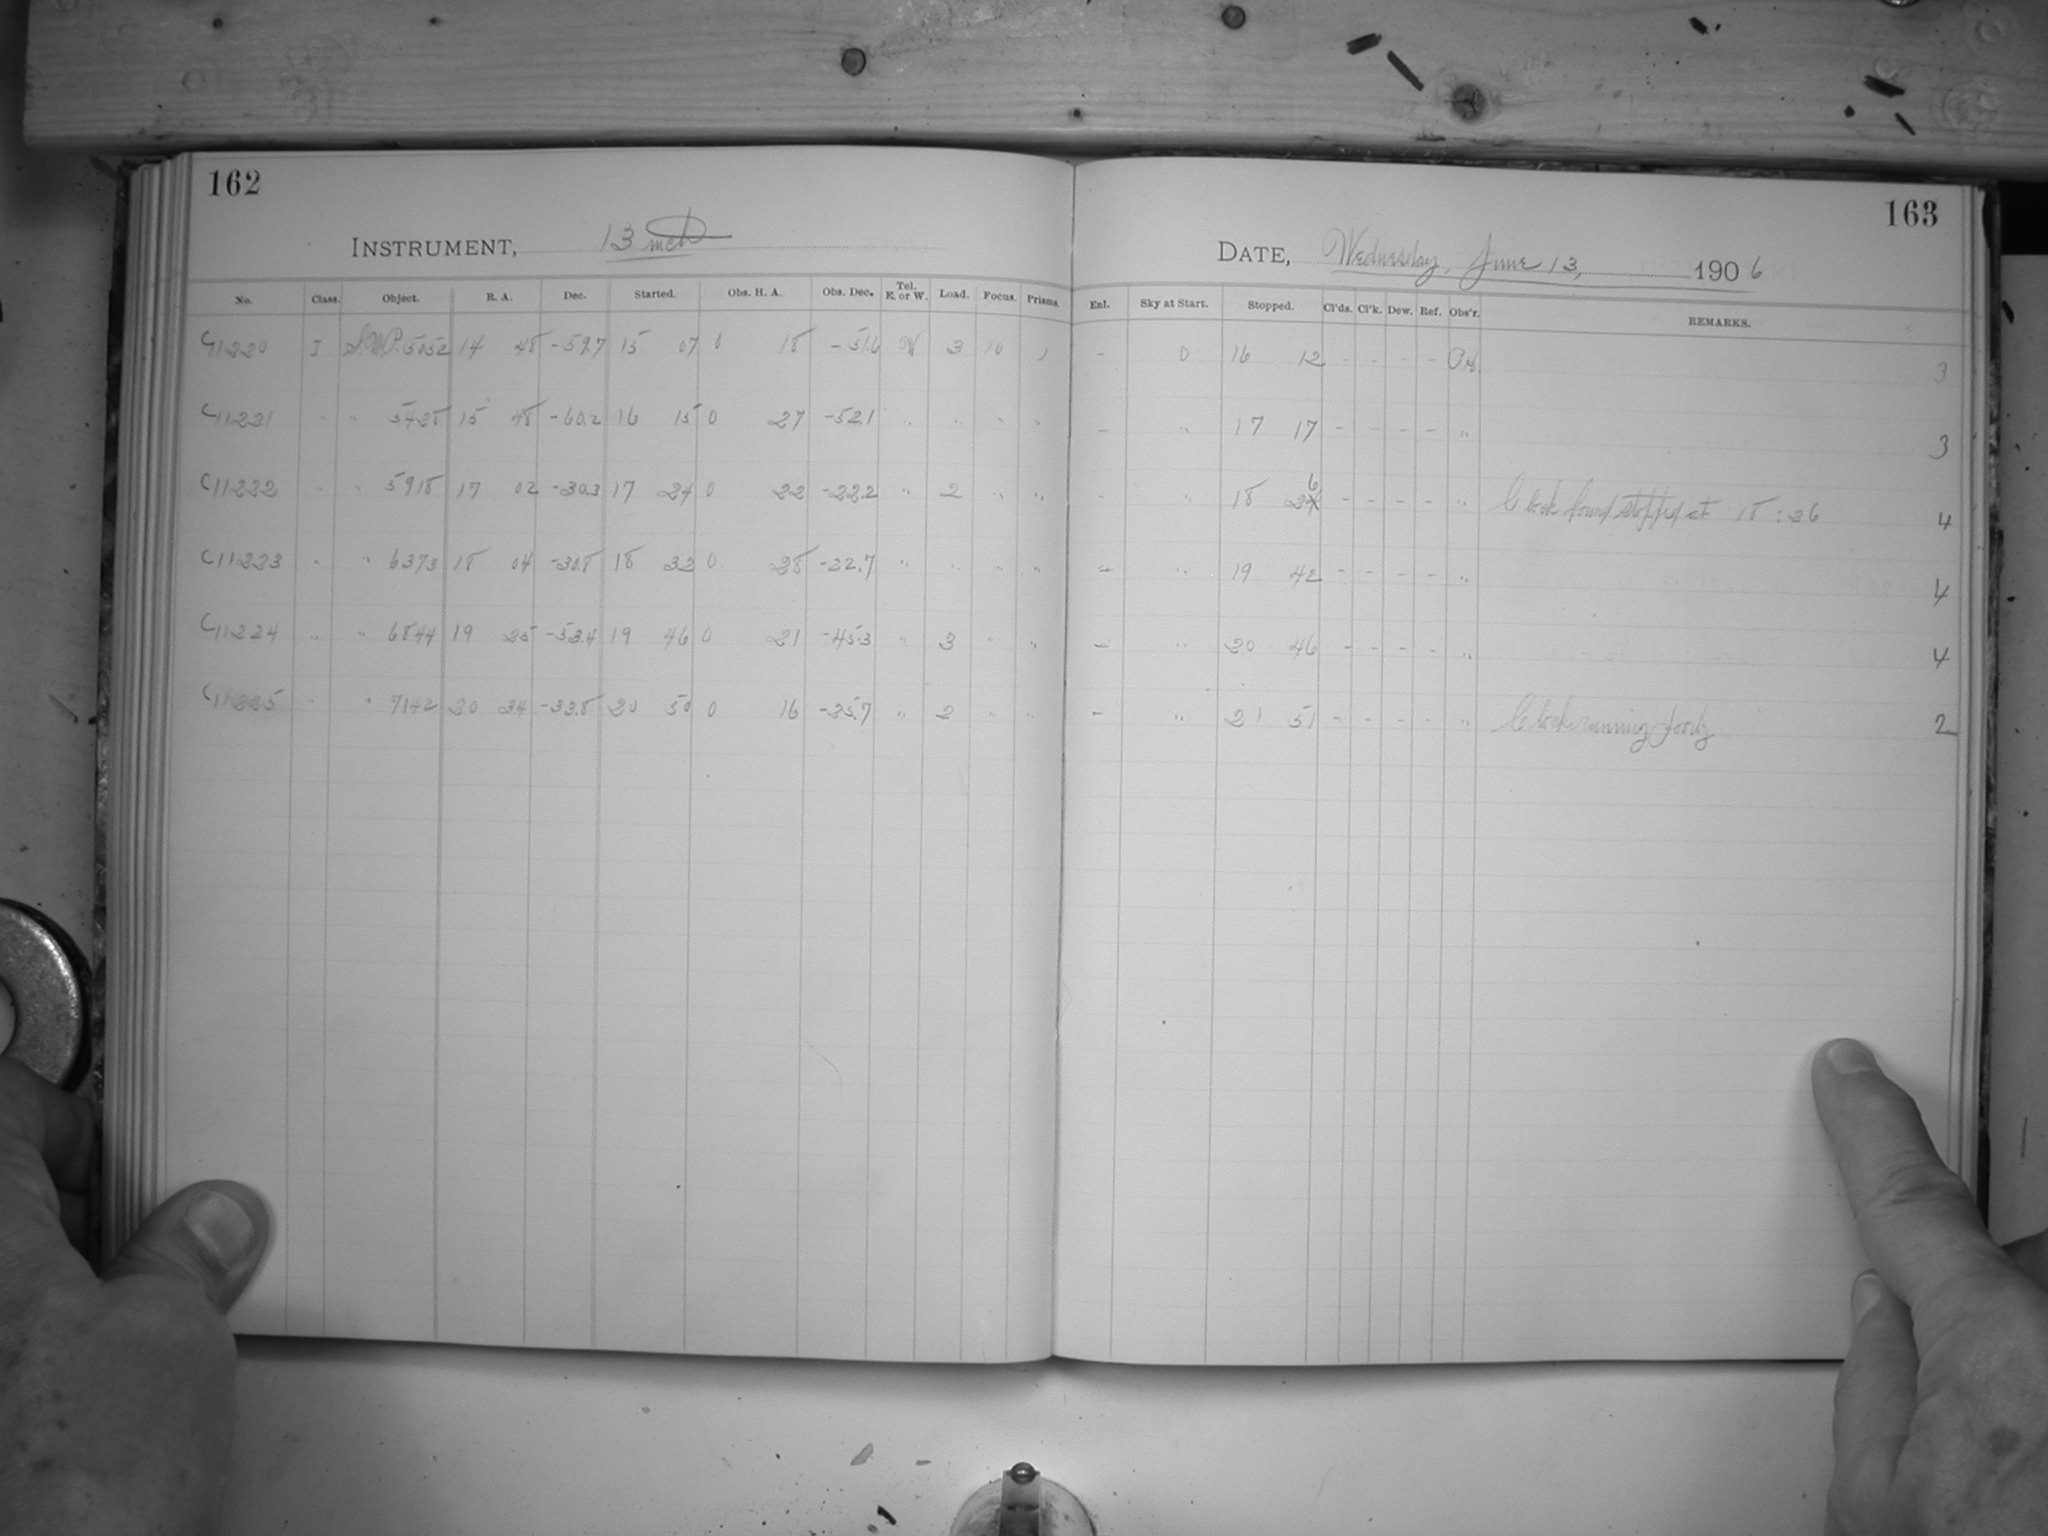 162
163
INSTRUMENT, 13 inch
DATE, Wednesday, June 13, 1906
No. Class. Object. R. A. Dec. Started. Obs. H. A. Obs. Dec. Tel. E. or W. Load. Focus. Prisms. Enl. Sky at Start. Stopped. Cl'ds. Cl'k. Dew. Ref. Obs'r. REMARKS.
C11220 I S.M.P. 5052 14 48 -59.7 15 07 0 18 -51.6 W 3 10 1 - 0 16 12 - - - - 3
C11221 " " 5428 15 48 -60.2 16 15 0 27 -52.1 " " " " - " 17 17 - - - - " 3
C11222 " " 5918 17 02 -30.3 17 24 0 22 -22.2 " 2 " " - " 18 26 - - - - " Clock found stopped at 18:26 4
C11223 " " 6373 18 04 -30.8 18 32 0 28 -22.7 " " " " - " 19 42 - - - - " 4
C11224 " " 6844 19 25 -53.4 19 46 0 21 -45.3 " 3 " " - " 20 46 - - - - " 4
C11225 " " 7142 20 34 -33.8 20 50 0 16 -25.7 " 2 " " - " 21 51 - - - - " Clock running poorly 2